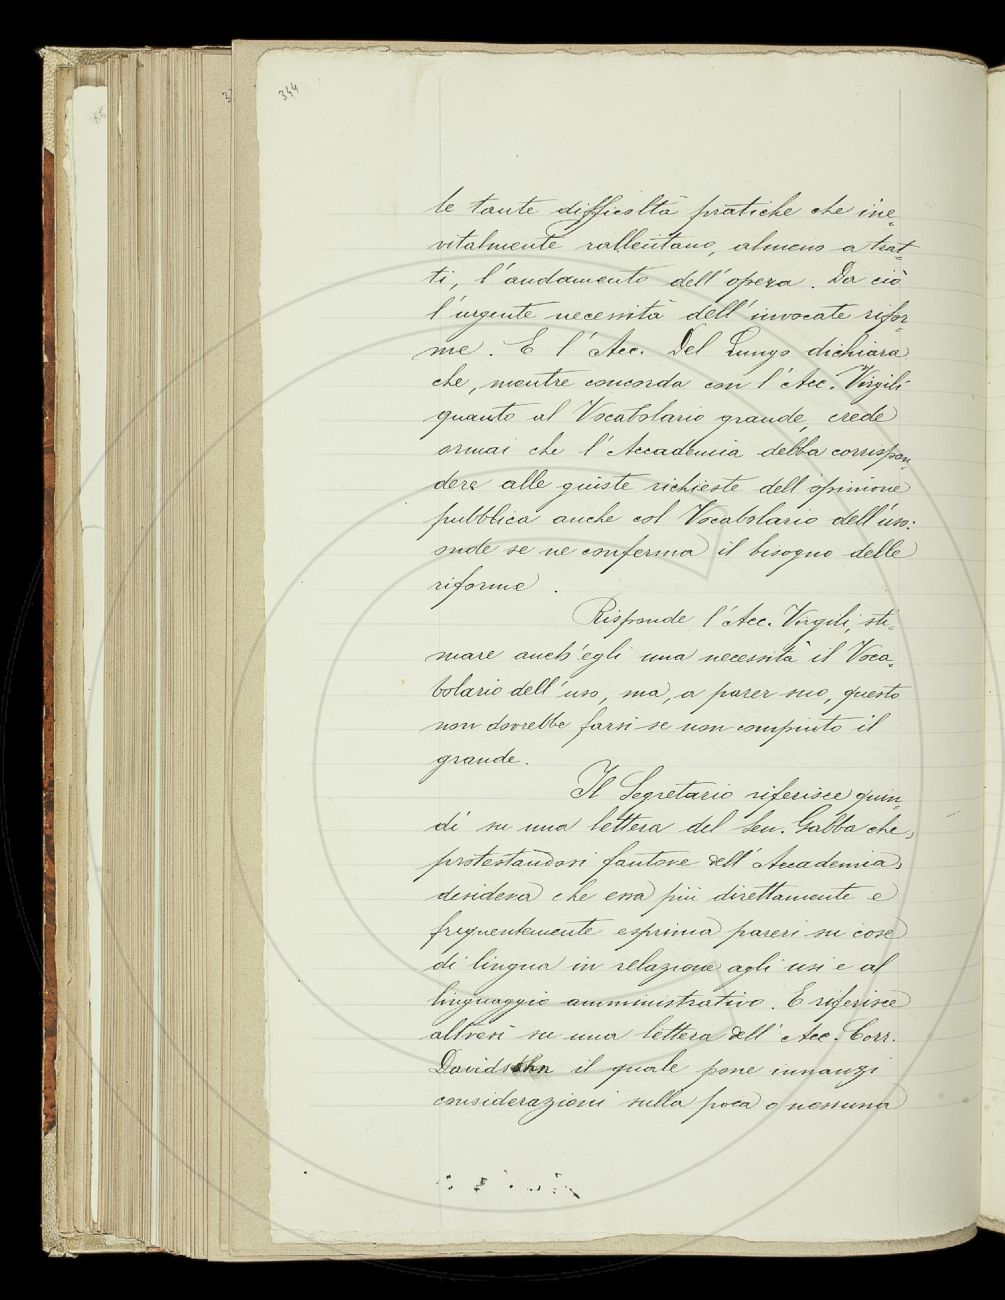 344
le tante difficoltà pratiche che ine-
vitalmente rallentano, almeno a trat-
ti, l'andamento dell'opera. Da ciò
l'urgente necessità dell'invocate rifor-
me. E l'Acc. Del Lungo dichiara
che, mentre concorda con l'Acc. Virgili
quanto al Vocabolario grande, crede
ormai che l'Accademia debba corrispon-
dere alle giuste richieste dell'opinione
pubblica anche col Vocabolario dell'uso:
onde se ne conferma il bisogno delle
riforme.
Risponde l'Acc. Virgili, sti-
mare anch'egli una necessità il Voca-
bolario dell'uso, ma, a parer suo, questo
non dovrebbe farsi se non compiuto il
grande.
Il Segretario riferisce quin-
di su una lettera del Sen. Gabba che,
protestandosi fautore dell'Accademia,
desidera che essa più direttamente e
frequentemente esprima pareri su cose
di lingua in relazione agli usi e al
linguaggio amministrativo. E riferisce
altresì su una lettera dell'Acc. Corr.
Davidsohn il quale pone innanzi
considerazioni sulla poca o nessuna